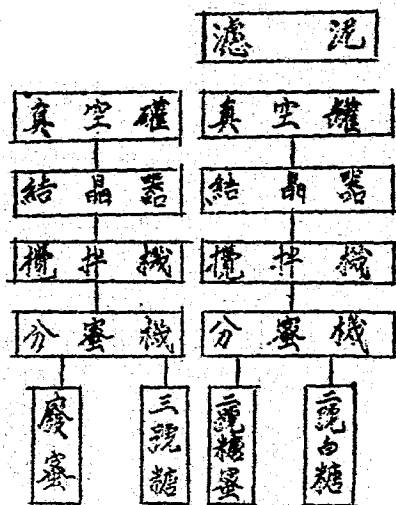 濾 泥
真 空 罐 真 空 罐
結 晶 器 結 晶 器
攪 拌 機 攪 拌 機
分 蜜 機 分 蜜 機
廢蜜
三號糖
二號糖蜜
二號白糖